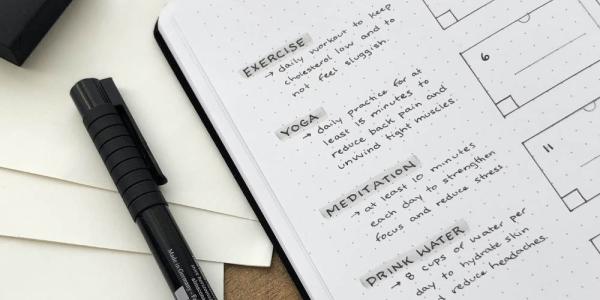 EXERCISE
→ daily workout to keep
cholesterol low and to
not feel sluggish.
YOGA
→ daily practice for at
least 15 minutes to
reduce back pain and
unwind tight muscles.
MEDITATION
→ at least 10 minutes
each day to strengthen
focus and reduce stress
DRINK WATER
→ 8 cups of water per
day to hydrate skin
and reduce headaches
6
11
Made in Germany